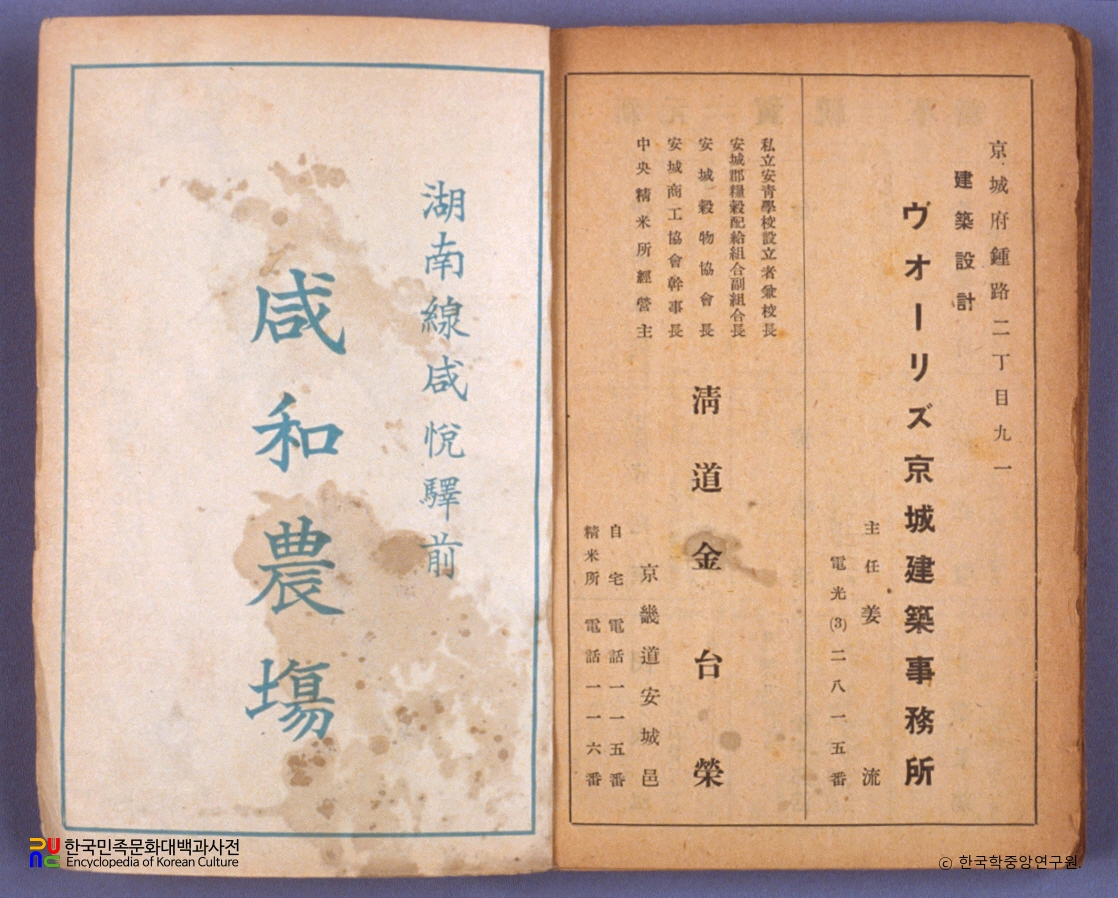 京城府鍾路二丁目九一
建築設計
ヴォーリズ京城建築事務所
主任 姜 流
電光(3)二八一五番
私立安靑學校設立者兼校長
安城郡糧穀配給組合副組合長
安城穀物協會長
安城商工協會幹事長
中央精米所經營主
淸道金台榮
京畿道安城邑
自宅 電話一一五番
精米所 電話一一六番
湖南線咸悅驛前
咸和農場
한국민족문화대백과사전
Encyclopedia of Korean Culture
© 한국학중앙연구원.